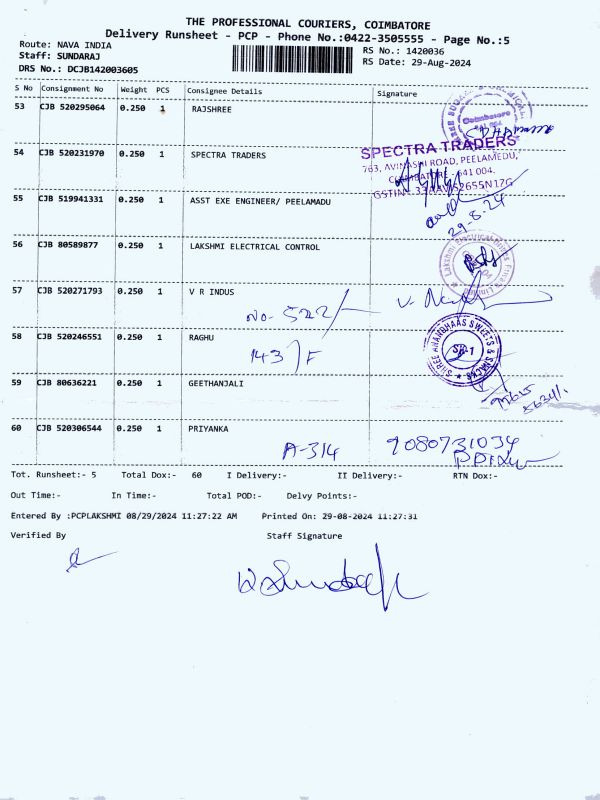 THE PROFESSIONAL COURIERS, COIMBATORE
Delivery Runsheet - PCP - Phone No.:0422-3505555 - Page No.:5
Route: NAVA INDIA
Staff: SUNDARAJ
DRS No.: DCJB142003605
RS No.: 1420036
RS Date: 29-Aug-2024
S No Consignment No Weight PCS Consignee Details Signature
53 CJB 520295064 0.250 1 RAJSHREE
Coimbatore
54 CJB 520231970 0.250 1 SPECTRA TRADERS
SPECTRA TRADERS
763, AVINASHI ROAD, PEELAMEDU,
COIMBATORE - 641 004.
55 CJB 519941331 0.250 1 ASST EXE ENGINEER/ PEELAMADU
29-8-24
56 CJB 80589877 0.250 1 LAKSHMI ELECTRICAL CONTROL
57 CJB 520271793 0.250 1 V R INDUS
No- 522/-
58 CJB 520246551 0.250 1 RAGHU
143/F
SHREE ANANDHAAS SWEETS & SNACKS
59 CJB 80636221 0.250 1 GEETHANJALI
60 CJB 520306544 0.250 1 PRIYANKA
A-314
9080731034
Tot. Runsheet:- 5 Total Dox:- 60 I Delivery:- II Delivery:- RTN Dox:-
Out Time:- In Time:- Total POD:- Delvy Points:-
Entered By :PCPLAKSHMI 08/29/2024 11:27:22 AM Printed On: 29-08-2024 11:27:31
Verified By Staff Signature